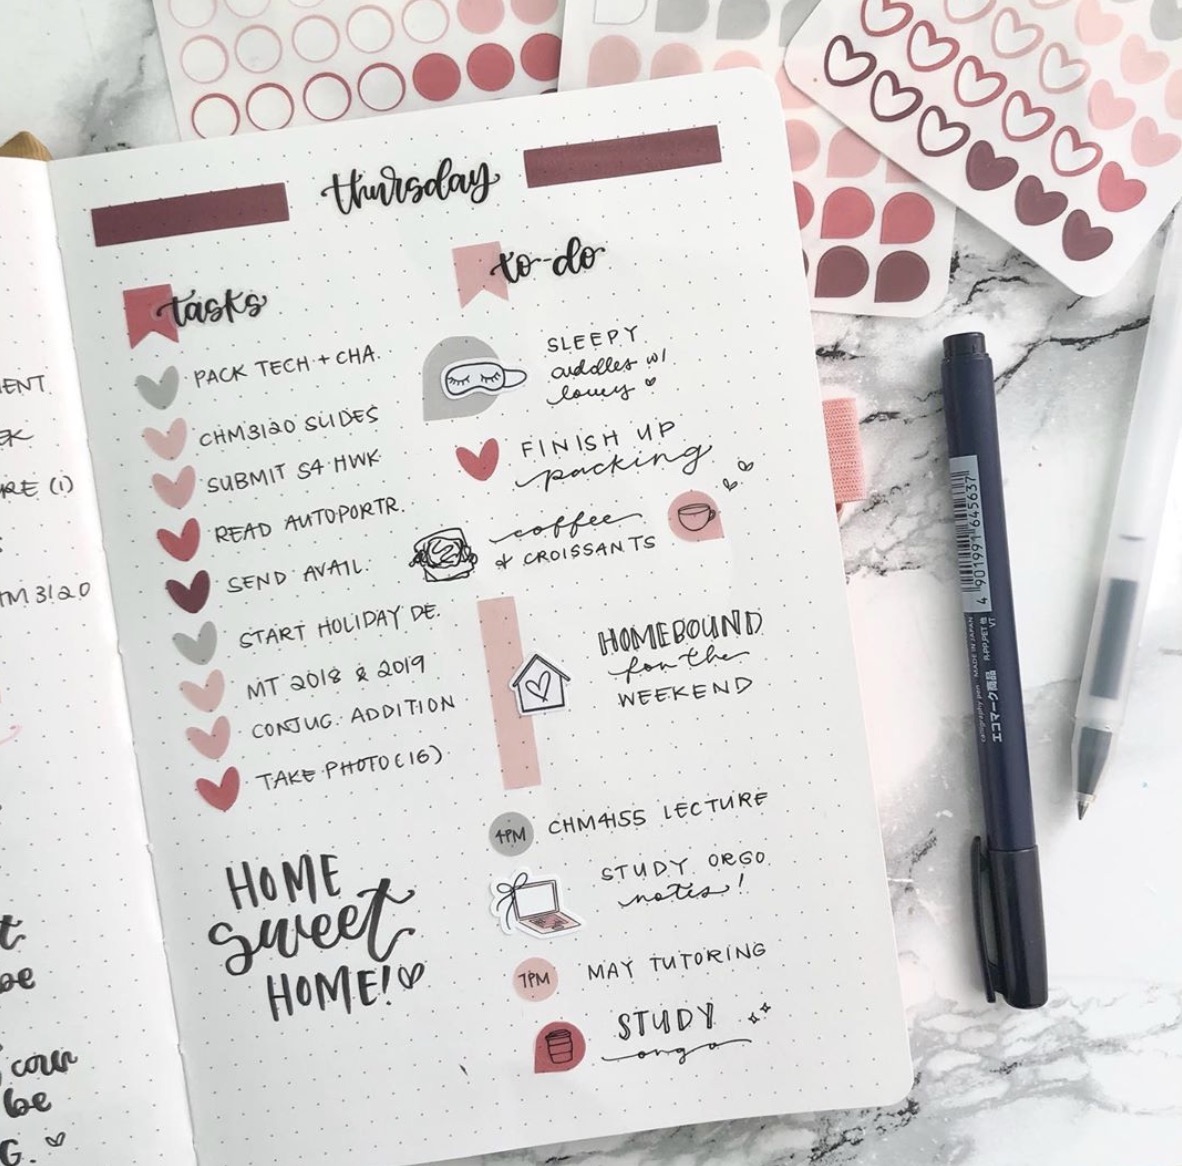 thursday
tasks
PACK TECH + CHA.
CHM3120 SLIDES
SUBMIT S4 HWK
READ AUTOPORTR.
SEND AVAIL.
START HOLIDAY DE.
MT 2018 & 2019
CONJUG. ADDITION
TAKE PHOTO (16)
HOME
sweet
HOME!
to-do
SLEEPY
cuddles w/
louey
FINISH UP
packing
coffee
& CROISSANTS
HOMEBOUND
for the
WEEKEND
4PM CHM4155 LECTURE
STUDY ORGO
notes!
7PM MAY TUTORING
STUDY
orgo
ENT
(1)
HM3120
be
be
G.
4 901991 645637
MADE IN JAPAN
エコマーク商品